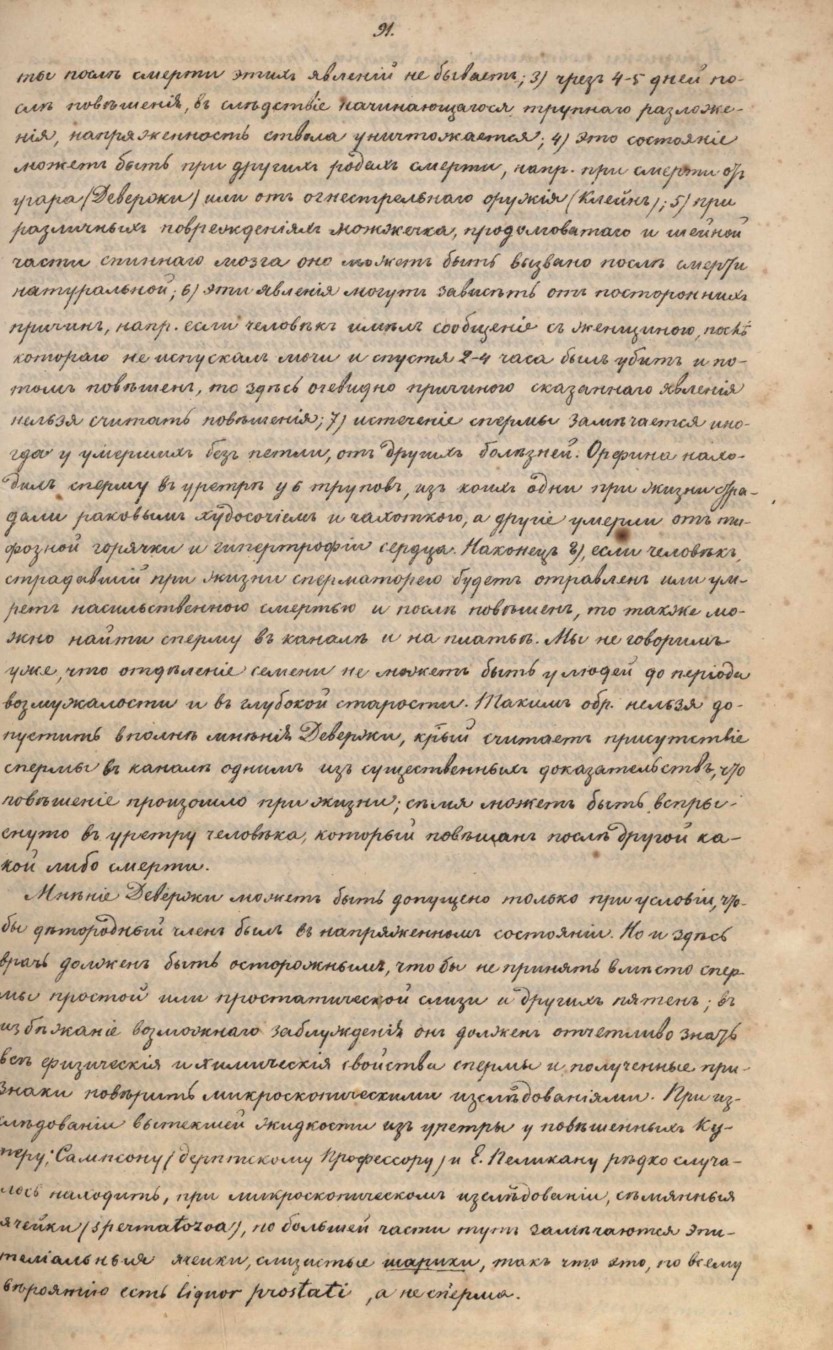 91.
ты послѣ смерти этихъ явленій не бываетъ; 3) чрезъ 4-5 дней по-
слѣ повѣшенія, въ слѣдствіе начинающагося трупнаго разложе-
нія, напряженность ствола уничтожается; 4) это состояніе
можетъ быть при другихъ родахъ смерти, напр. при смерти отъ
угара (Девержи) или отъ огнестрельнаго оружія (Клейнъ); 5) при
различныхъ поврежденіяхъ мозжечка, продолговатаго и шейной
части спиннаго мозга оно можетъ быть вызвано послѣ смерти
натуральной; 6) эти явленія могутъ зависѣть отъ постороннихъ
причинъ, напр. если человѣкъ имѣлъ сообщеніе съ женщиною, послѣ
котораго не испускалъ мочи и спустя 2-4 часа былъ убитъ и по-
томъ повѣшенъ, то здѣсь очевидно причиною сказаннаго явленія
нельзя считать повѣшенія; 7) истеченіе спермы замѣчается ино-
гда у умершихъ безъ петли, отъ другихъ болѣзней. Орфила нахо-
дилъ сперму въ уретрѣ у 6 труповъ, изъ коихъ одни при жизни стра-
дали раковымъ худосочіемъ и чахоткою, а другіе умерли отъ ти-
фозной горячки и гипертрофіи сердца. Наконецъ 8), если человѣкъ,
страдавшій при жизни сперматореею будетъ отравленъ или ум-
ретъ насильственною смертью и послѣ повѣшенъ, то также мо-
жно найти сперму въ каналѣ и на платьѣ. Мы не говоримъ
уже, что отдѣленіе семени не можетъ быть у людей до періода
возмужалости и въ глубокой старости. Такимъ обр. нельзя до-
пустить вполнѣ мнѣнія Девержи, крый считаетъ присутствіе
спермы въ каналѣ однимъ изъ существенныхъ доказательствъ, что
повѣшеніе произошло при жизни; сѣмя можетъ быть вспры-
снуто въ уретру человѣка, который повѣшанъ послѣ другой ка-
кой либо смерти.
Мнѣніе Девержи можетъ быть допущено только при условіи, что-
бы дѣтородный членъ былъ въ напряженномъ состояніи. Но и здѣсь
врачъ долженъ быть осторожнымъ, что бы не принять вмѣсто спер-
мы простой или простатической слизи и другихъ пятенъ; въ
избѣжаніе возможнаго заблужденія онъ долженъ отчетливо знать
всѣ физическія и химическія свойства спермы и полученные при-
знаки повѣрить микроскопическими изслѣдованіями. При из-
слѣдованіи вытекшей жидкости изъ уретры у повѣшенныхъ Ку-
перу, Сампсону (дерптскому Профессору) и Е. Пеликану рѣдко случа-
лось находить, при микроскопическомъ изслѣдованіи, сѣмянныя
ячейки (spermatozoa), по большей части тутъ замѣчаются эпи-
теліальныя ячейки, слизистые шарики, такъ что это, по всему
вѣроятію есть liquor prostati, а не сперма.